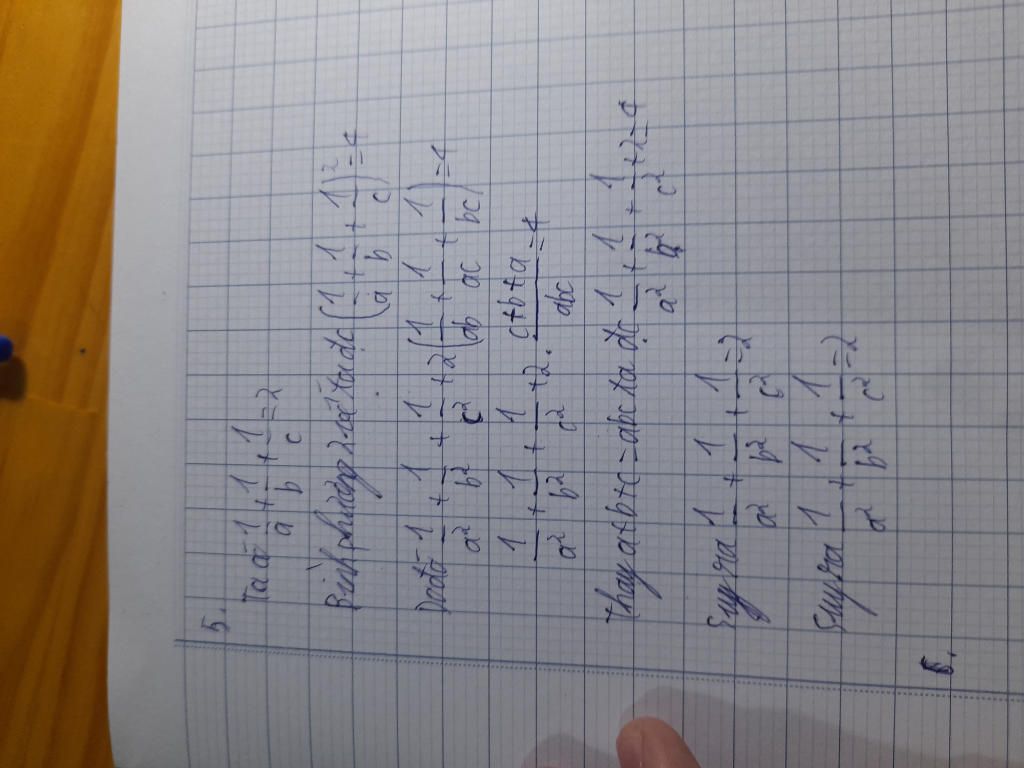 5.
Ta có 1/a + 1/b + 1/c = 2
Bình phương 2 vế ta đc (1/a + 1/b + 1/c)² = 4
Do đó 1/a² + 1/b² + 1/c² + 2(1/ab + 1/ac + 1/bc) = 4
1/a² + 1/b² + 1/c² + 2. c+b+a/abc = 4
Thay a+b+c = abc ta đc 1/a² + 1/b² + 1/c² + 2 = 4
Suy ra 1/a² + 1/b² + 1/c² = 2
Suy ra 1/a² + 1/b² + 1/c² = 2
6.